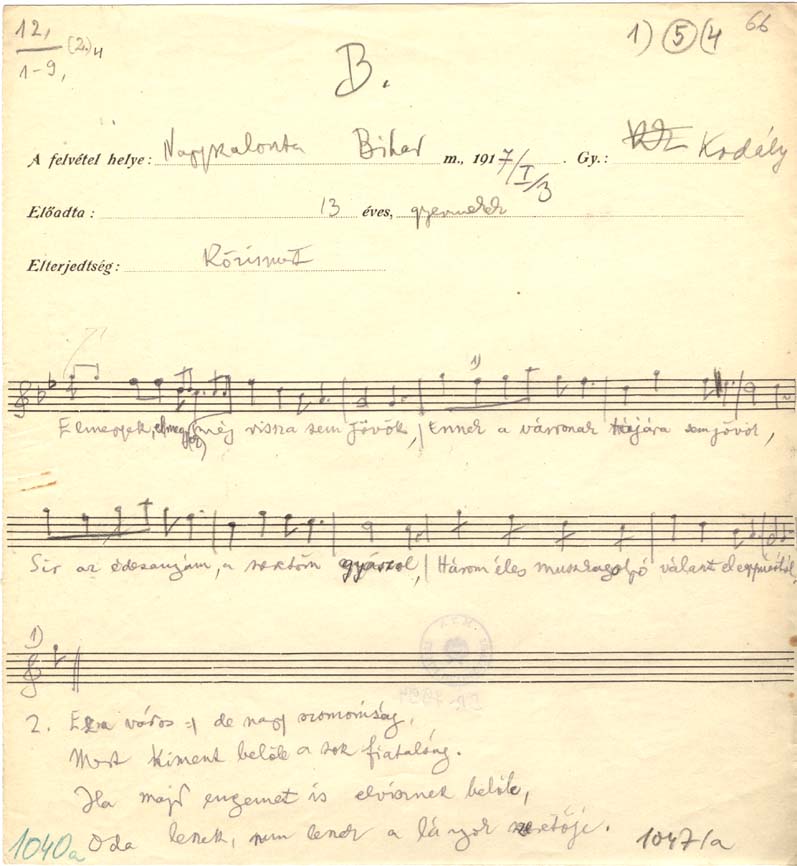 12,
1-9, (2.)4
1) 5 (4
66
B.
A felvétel helye: Nagyszalonta Bihar m., 1917/I/3. Gy.: Kodály
Előadta: 13 éves, gyermekek
Elterjedtség: Közismert
1)
Elmegyek, elmegyek, még vissza sem jövök, Ennek a városnak tájára sem jövök,
Sír az édesanyám, a szeretőm gyászol, Három éles muszkagolyó választ el egymástól
1)
2. Ez a város =| de nagy szomorúság,
Most kiment belőle a sok fiatalság.
Ha majd engemet is elvisznek belőle,
Oda leszek, nem leszek a lányok szeretője.
1040a
1047/a